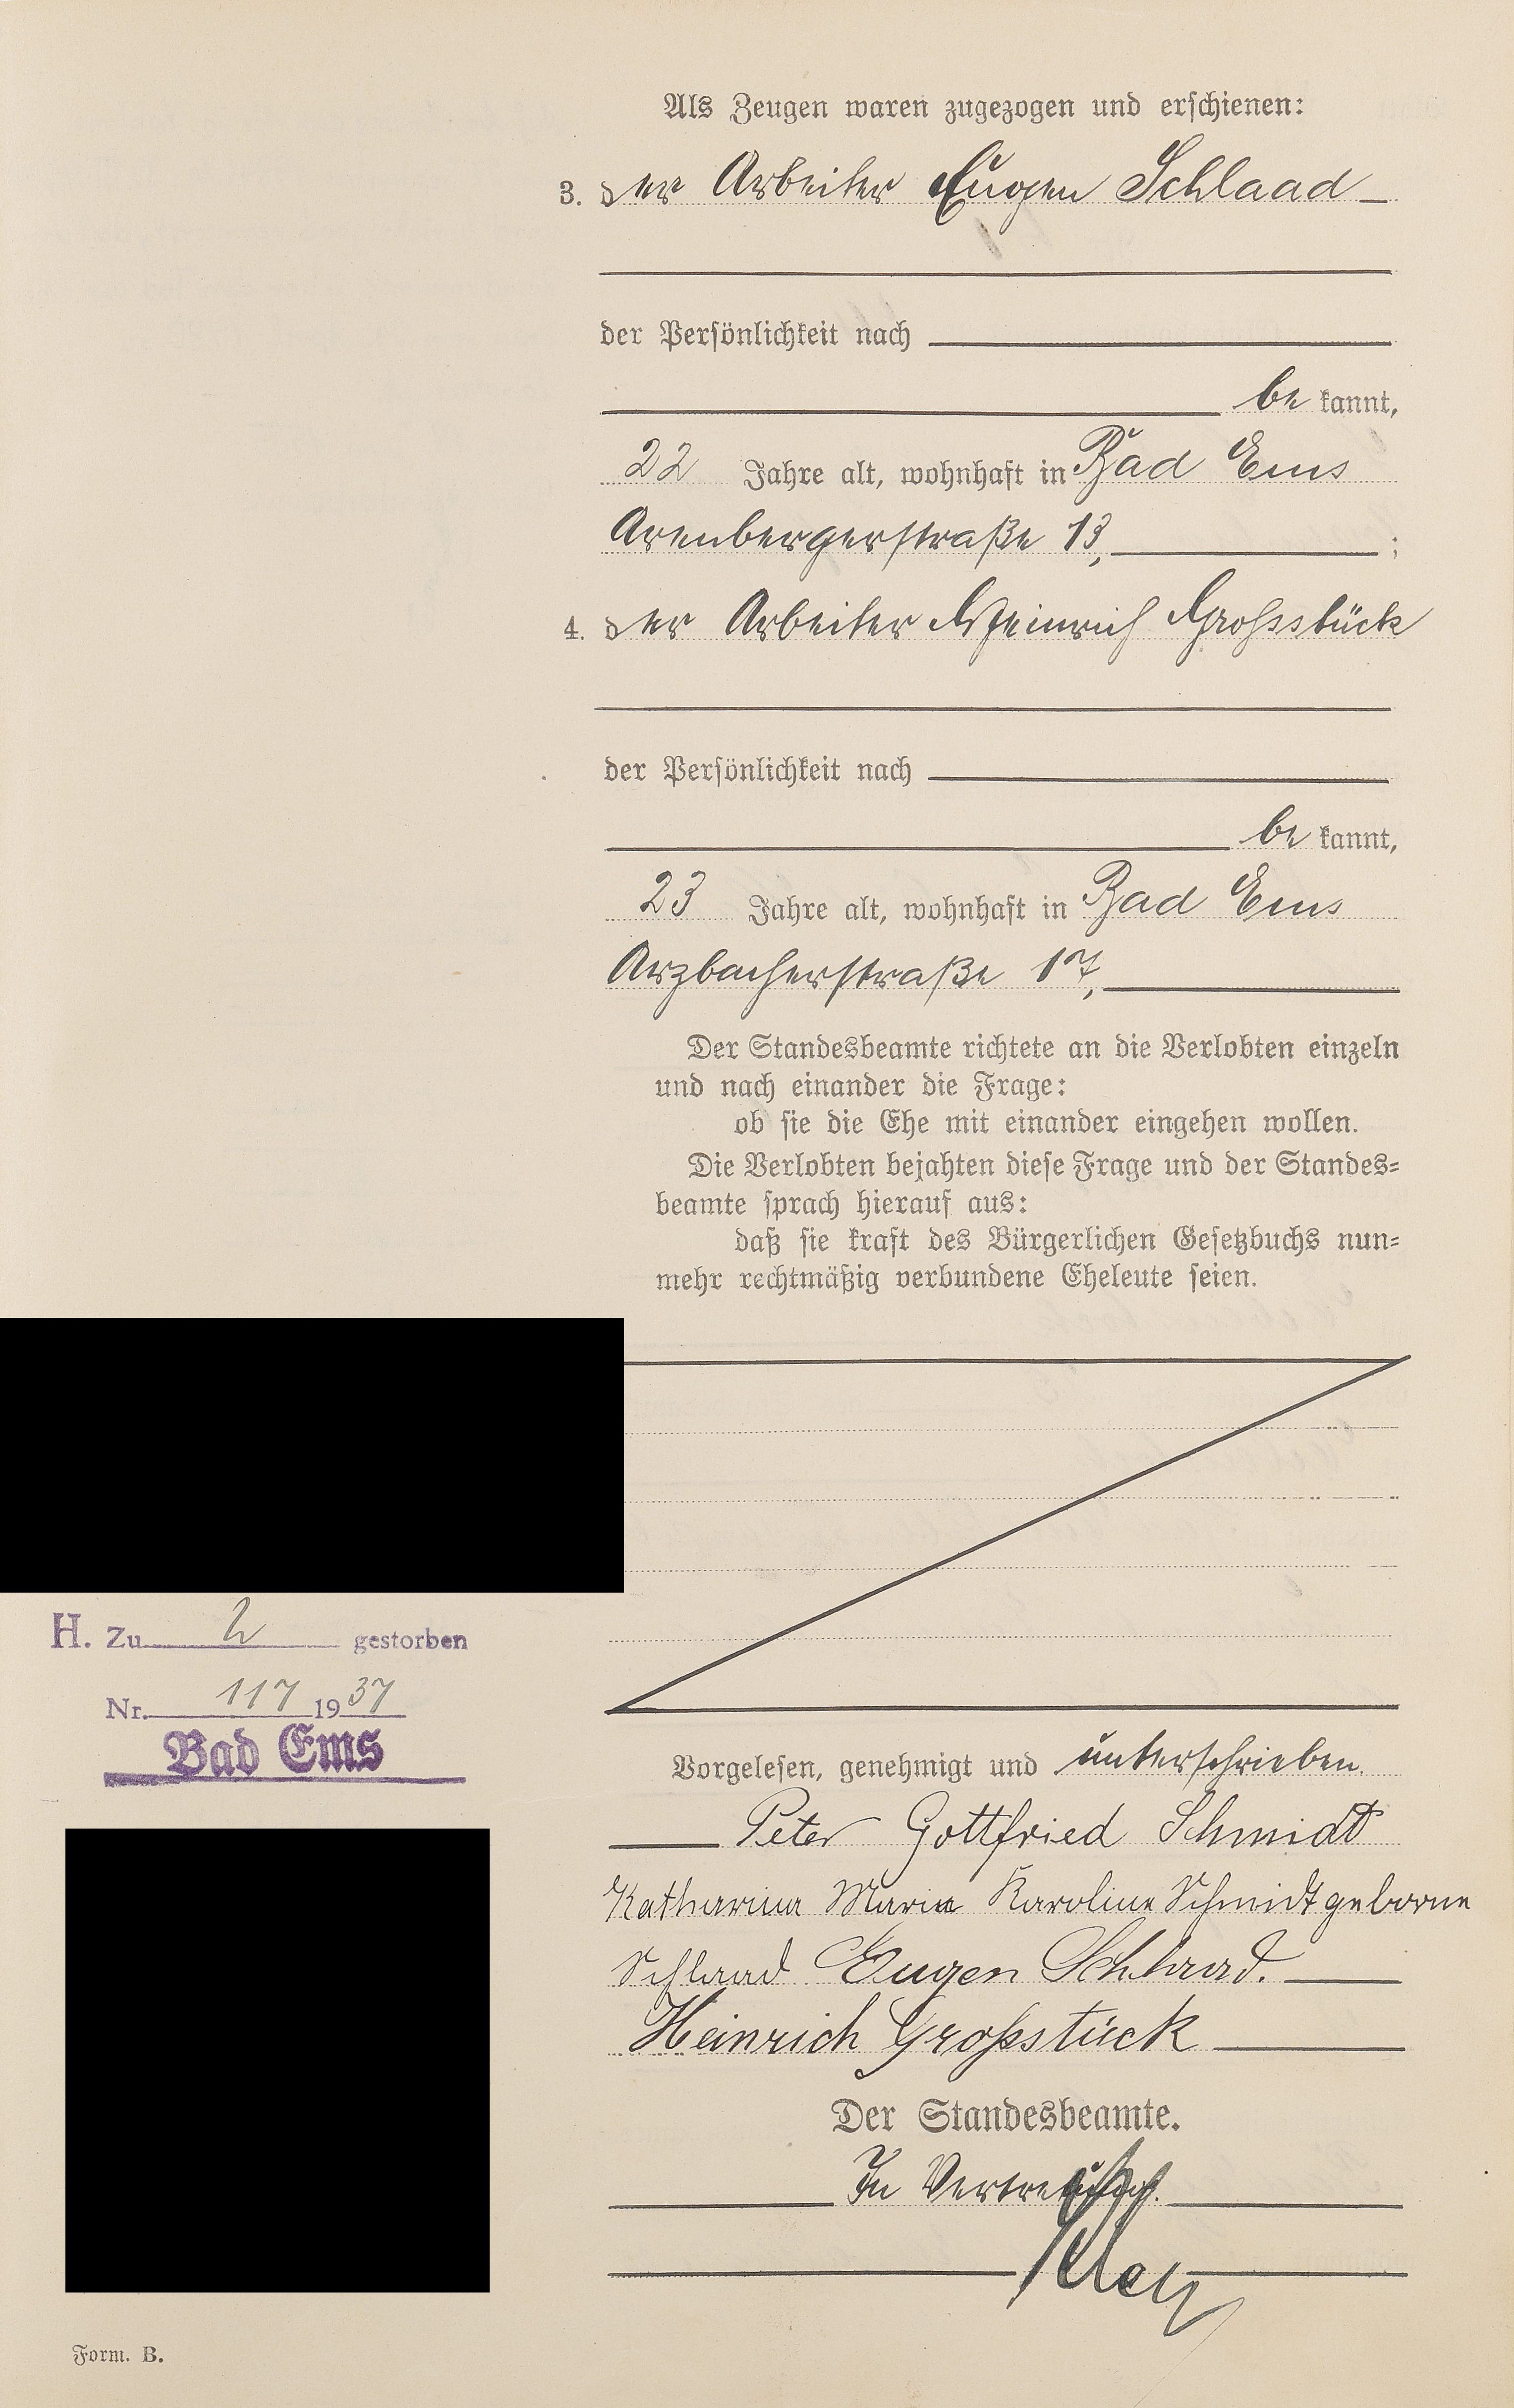 Als Zeugen waren zugezogen und erschienen:
3. der Arbeiter Eugen Schlaad
der Persönlichkeit nach
be kannt,
22 Jahre alt, wohnhaft in Bad Ems
Arenbergerstraße 13, ;
4. der Arbeiter Heinrich Grossstück
der Persönlichkeit nach
be kannt,
23 Jahre alt, wohnhaft in Bad Ems
Arzbacherstraße 17,
Der Standesbeamte richtete an die Verlobten einzeln
und nach einander die Frage:
ob sie die Ehe mit einander eingehen wollen.
Die Verlobten bejahten diese Frage und der Standes-
beamte sprach hierauf aus:
daß sie kraft des Bürgerlichen Gesetzbuchs nun-
mehr rechtmäßig verbundene Eheleute seien.
H. Zu 2 gestorben
Nr. 117 1937
Bad Ems
Vorgelesen, genehmigt und unterschrieben.
Peter Gottfried Schmidt
Katharina Maria Karoline Schmidt geborne
Schlaad Eugen Schlaad.
Heinrich Großstück
Der Standesbeamte.
In Vertretung.
Form. B.